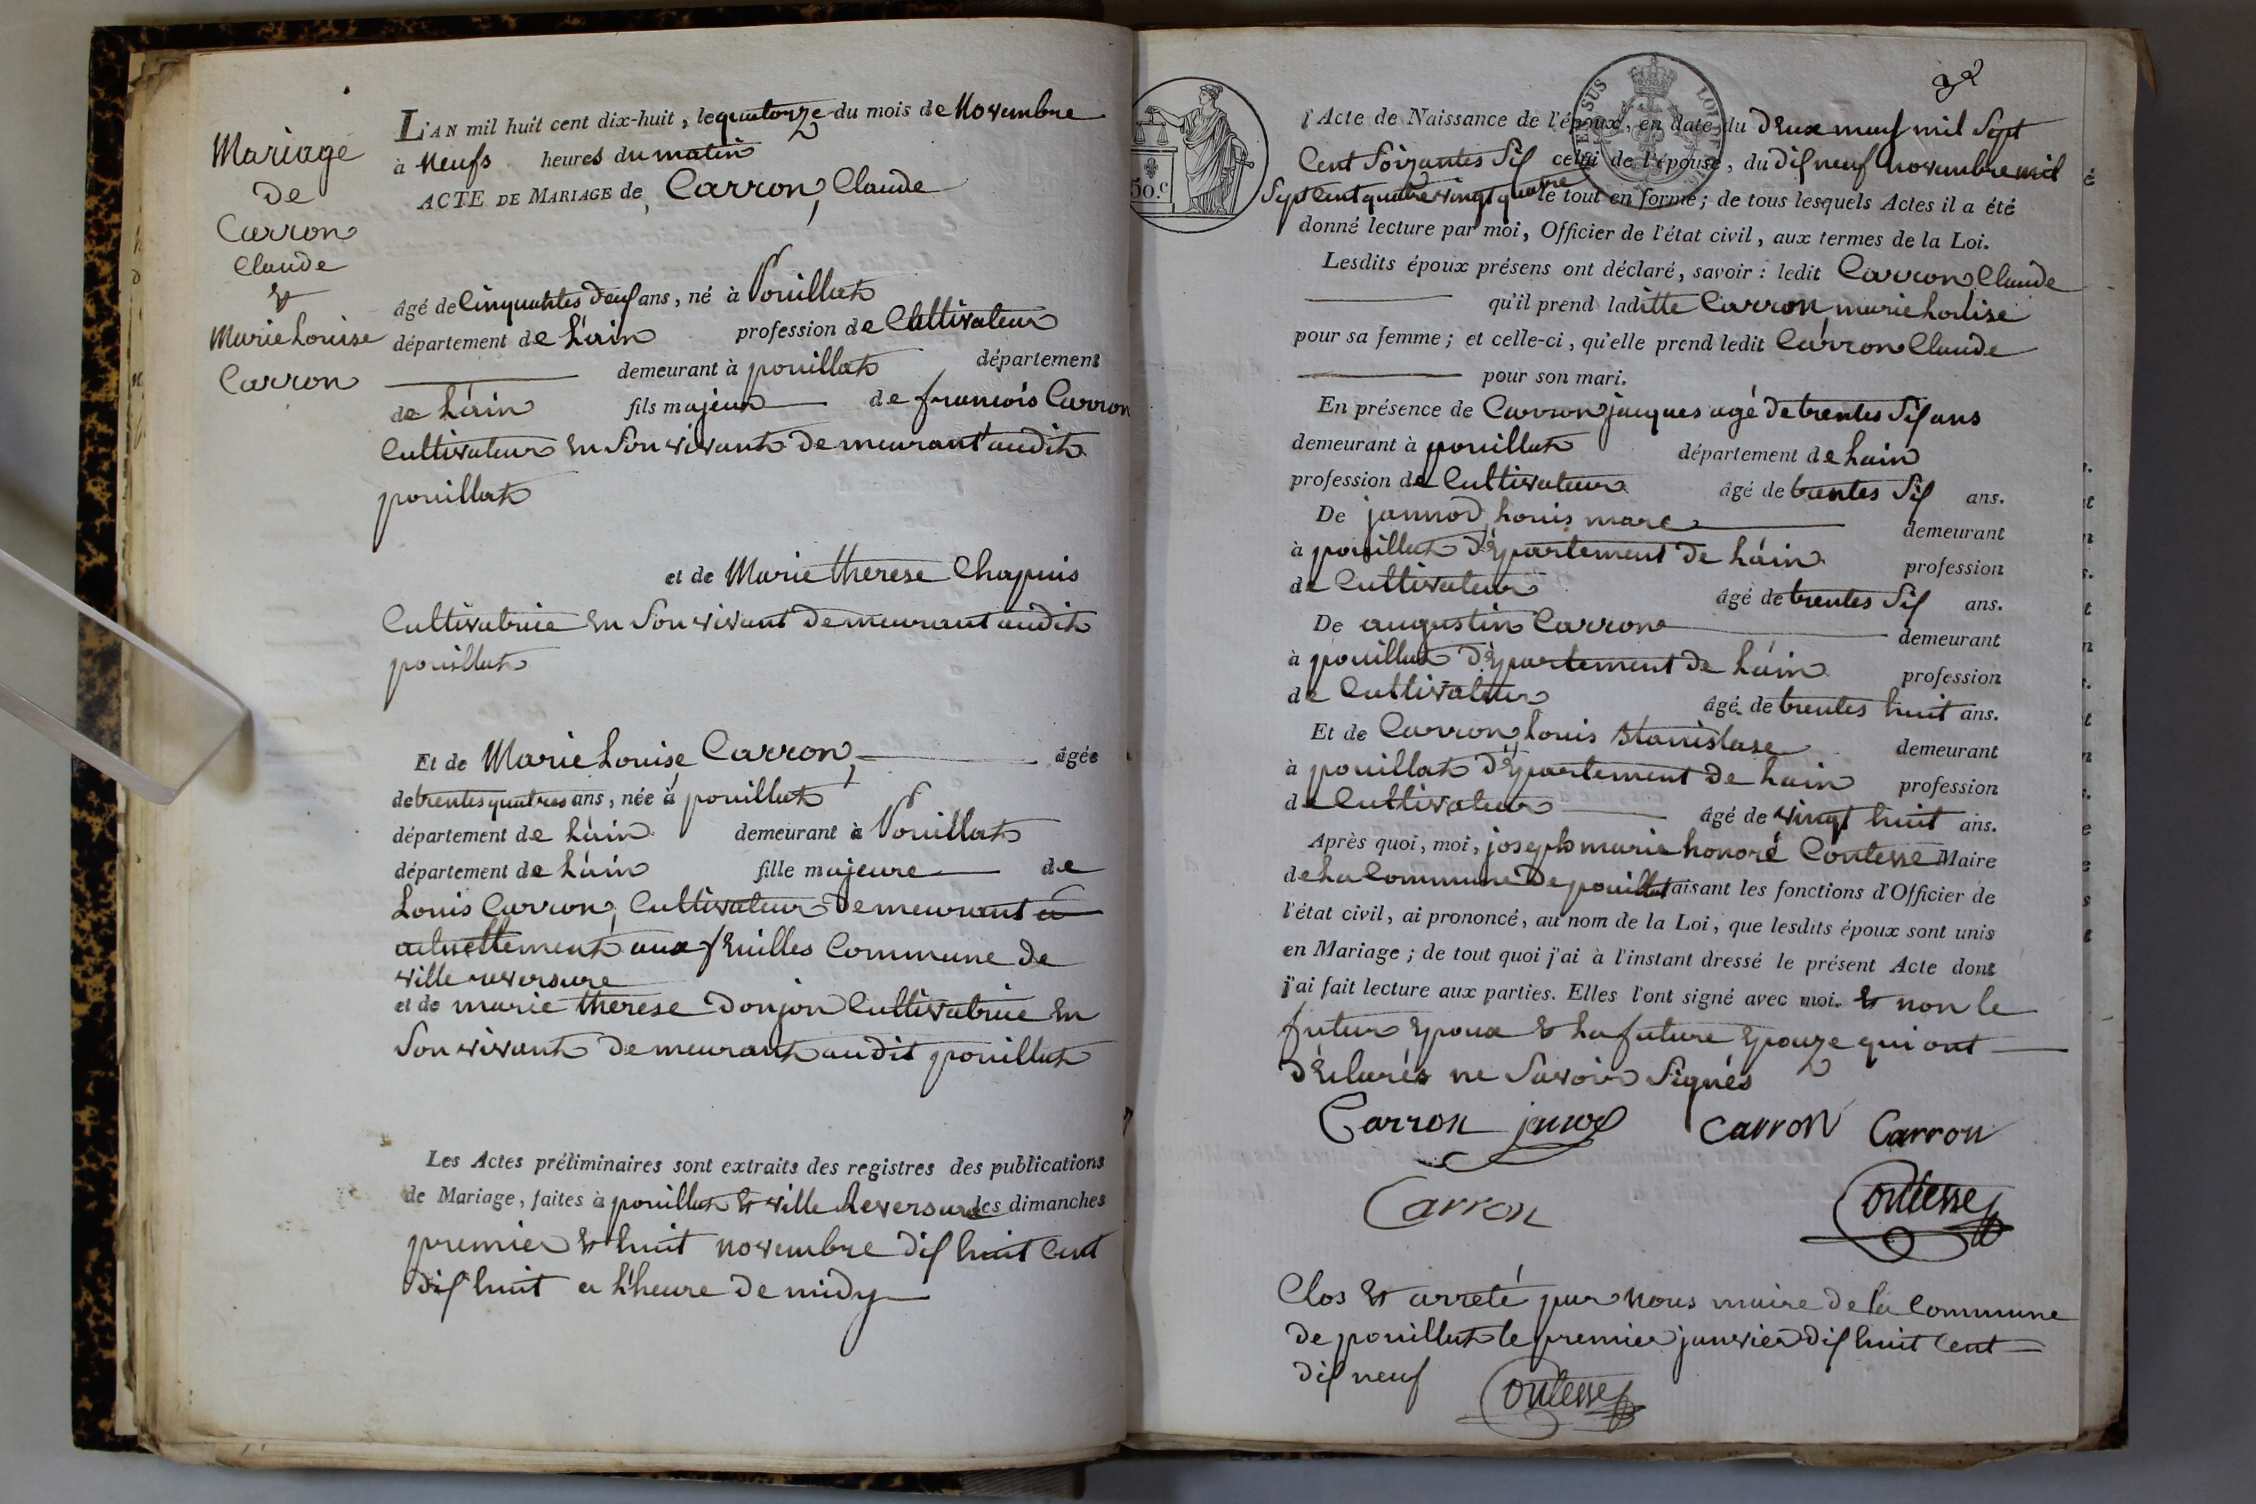 Mariage
de
Carron
Claude
&
Marie Louise
Carron
L'AN mil huit cent dix-huit, le quatorze du mois de Novembre
à Neufs heures du matin
ACTE DE MARIAGE de Carron, Claude
âgé de Cinquantes deuf ans, né à Pouillat
département de L'ain profession de Cultivateur
demeurant à pouillat département
de L'ain fils majeur de françois Carron
Cultivateur en Son vivant demeurant audit
pouillat
et de Marie therese Chapuis
Cultivatrice en Son vivant demeurant audit
pouillat
Et de Marie Louise Carron, âgée
de trentes quatres ans, née à pouillat
département de L'ain demeurant à Pouillat
département de L'ain fille majeure de
Louis Carron, Cultivateur demeurant a
actuellement aux feuilles Commune de
ville reversure
et de marie therese Donjon Cultivatrice en
Son vivant demeurant audit pouillat
Les Actes préliminaires sont extraits des registres des publications
de Mariage, faites à pouillat & ville Reversure les dimanches
premier & huit novembre dif huit Cent
dif huit a L'heure de midy
32
50.c
l'Acte de Naissance de l'époux, en date du deux may mil Sept
Cent Soizantes Sif celui de l'épouse, du dif neuf novembre mil
Sept Cent quatre vingt quatre le tout en forme; de tous lesquels Actes il a été
donné lecture par moi, Officier de l'état civil, aux termes de la Loi.
Lesdits époux présens ont déclaré, savoir: ledit Carron Claude
qu'il prend laditte Carron marie Louise
pour sa femme; et celle-ci, qu'elle prend ledit Carron Claude
pour son mari.
En présence de Carron jacques agé de trentes Sif ans
demeurant à pouillat département de Lain
profession de Cultivateur âgé de trentes Sif ans.
De jannod Louis marc demeurant
à pouillat département de L'ain profession
de Cultivateur âgé de trentes Sif ans.
De augustin Carron demeurant
à pouillat département de L'ain profession
de Cultivateur âgé de trentes huit ans.
Et de Carron, Louis Stanislase demeurant
à pouillat département de Lain profession
de Cultivateur âgé de vingt huit ans.
Après quoi, moi, joseph marie honoré Coutesse Maire
de La Commune de pouillat faisant les fonctions d'Officier de
l'état civil, ai prononcé, au nom de la Loi, que lesdits époux sont unis
en Mariage; de tout quoi j'ai à l'instant dressé le présent Acte dont
j'ai fait lecture aux parties. Elles l'ont signé avec moi. & non le
futur Epoux & La future Epouze qui ont
déclarés ne Savoir Signés
Carron janod Carron Carron
Carron Coutesse
Clos & arreté par nous maire de la Commune
de pouillat le premier janvier dif huit Cent
dif neuf Coutesse